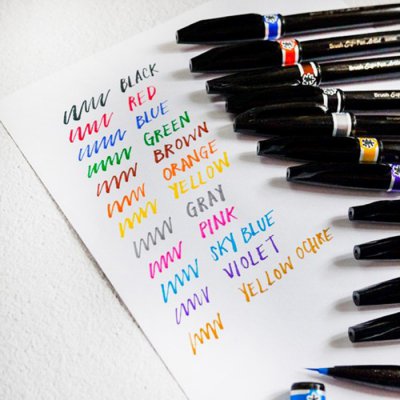 BLACK
RED
BLUE
GREEN
BROWN
ORANGE
YELLOW
GRAY
PINK
SKY BLUE
VIOLET
YELLOW OCHRE
Brush Sign Pen Artist
Brush Sign Pen Artist
Brush Sign Pen Artist